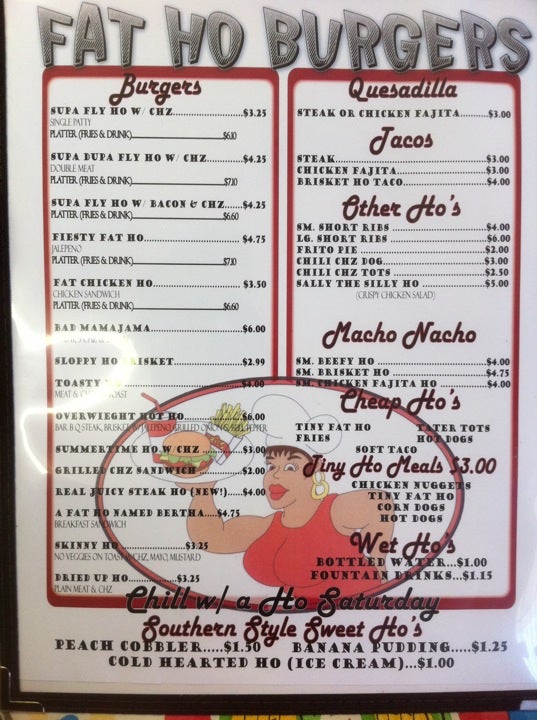 FAT HO BURGERS
Burgers
SUPA FLY HO W/ CHZ......................$3.25
SINGLE PATTY
PLATTER (FRIES & DRINK)______$6.10
SUPA DUPA FLY HO W/ CHZ.........$4.25
DOUBLE MEAT
PLATTER (FRIES & DRINK)______$7.10
SUPA FLY HO W/ BACON & CHZ.....$4.25
PLATTER (FRIES & DRINK)______$6.60
FIESTY FAT HO........................ $4.75
JALEPENO
PLATTER (FRIES & DRINK)______$7.10
FAT CHICKEN HO...................... $3.50
CHICKEN SANDWICH
PLATTER (FRIES & DRINK)______$6.60
BAD MAMAJAMA.......................$6.00
SLOPPY HO BRISKET.................$2.99
TOASTY $4.00
MEAT & TOAST
OVERWIEGHT HOT HO..............$6.00
BAR B Q STEAK, BRISKET W/ JALEPENO, GRILLED ONION & BELL PEPPER
SUMMERTIME HO W/ CHZ ..........$3.00
GRILLED CHZ SANDWICH ..........$2.00
REAL JUICY STEAK HO (NEW!).....$4.00
A FAT HO NAMED BERTHA.....$4.75
BREAKFAST SANDWICH
SKINNY HO ................$3.25
NO VEGGIES ON TOAST & CHZ, MAYO, MUSTARD
DRIED UP HO.............$3.25
PLAIN MEAT & CHZ
Quesadilla
STEAK OR CHICKEN FAJITA..........$3.00
Tacos
STEAK................................$3.00
CHICKEN FAJITA....................$3.00
BRISKET HO TACO..................$4.00
Other Ho's
SM. SHORT RIBS ....................$4.00
LG. SHORT RIBS ....................$6.00
FRITO PIE ..........................$2.00
CHILI CHZ DOG.....................$3.00
CHILI CHZ TOTS ...................$2.50
SALLY THE SILLY HO .............$5.00
(CRISPY CHICKEN SALAD)
Macho Nacho
SM. BEEFY HO ......................$4.00
SM. BRISKET HO ...................$4.75
SM. CHICKEN FAJITA HO ..........$4.00
Cheap Ho's
TINY FAT HO TATER TOTS
FRIES HOT DOGS
SOFT TACO
Tiny Ho Meals $3.00
CHICKEN NUGGETS
TINY FAT HO
CORN DOGS
HOT DOGS
Wet Ho's
BOTTLED WATER...$1.00
FOUNTAIN DRINKS...$1.15
Chill w/ a Ho Saturday
Southern Style Sweet Ho's
PEACH COBBLER.....$1.50 BANANA PUDDING.....$1.25
COLD HEARTED HO (ICE CREAM)...$1.00